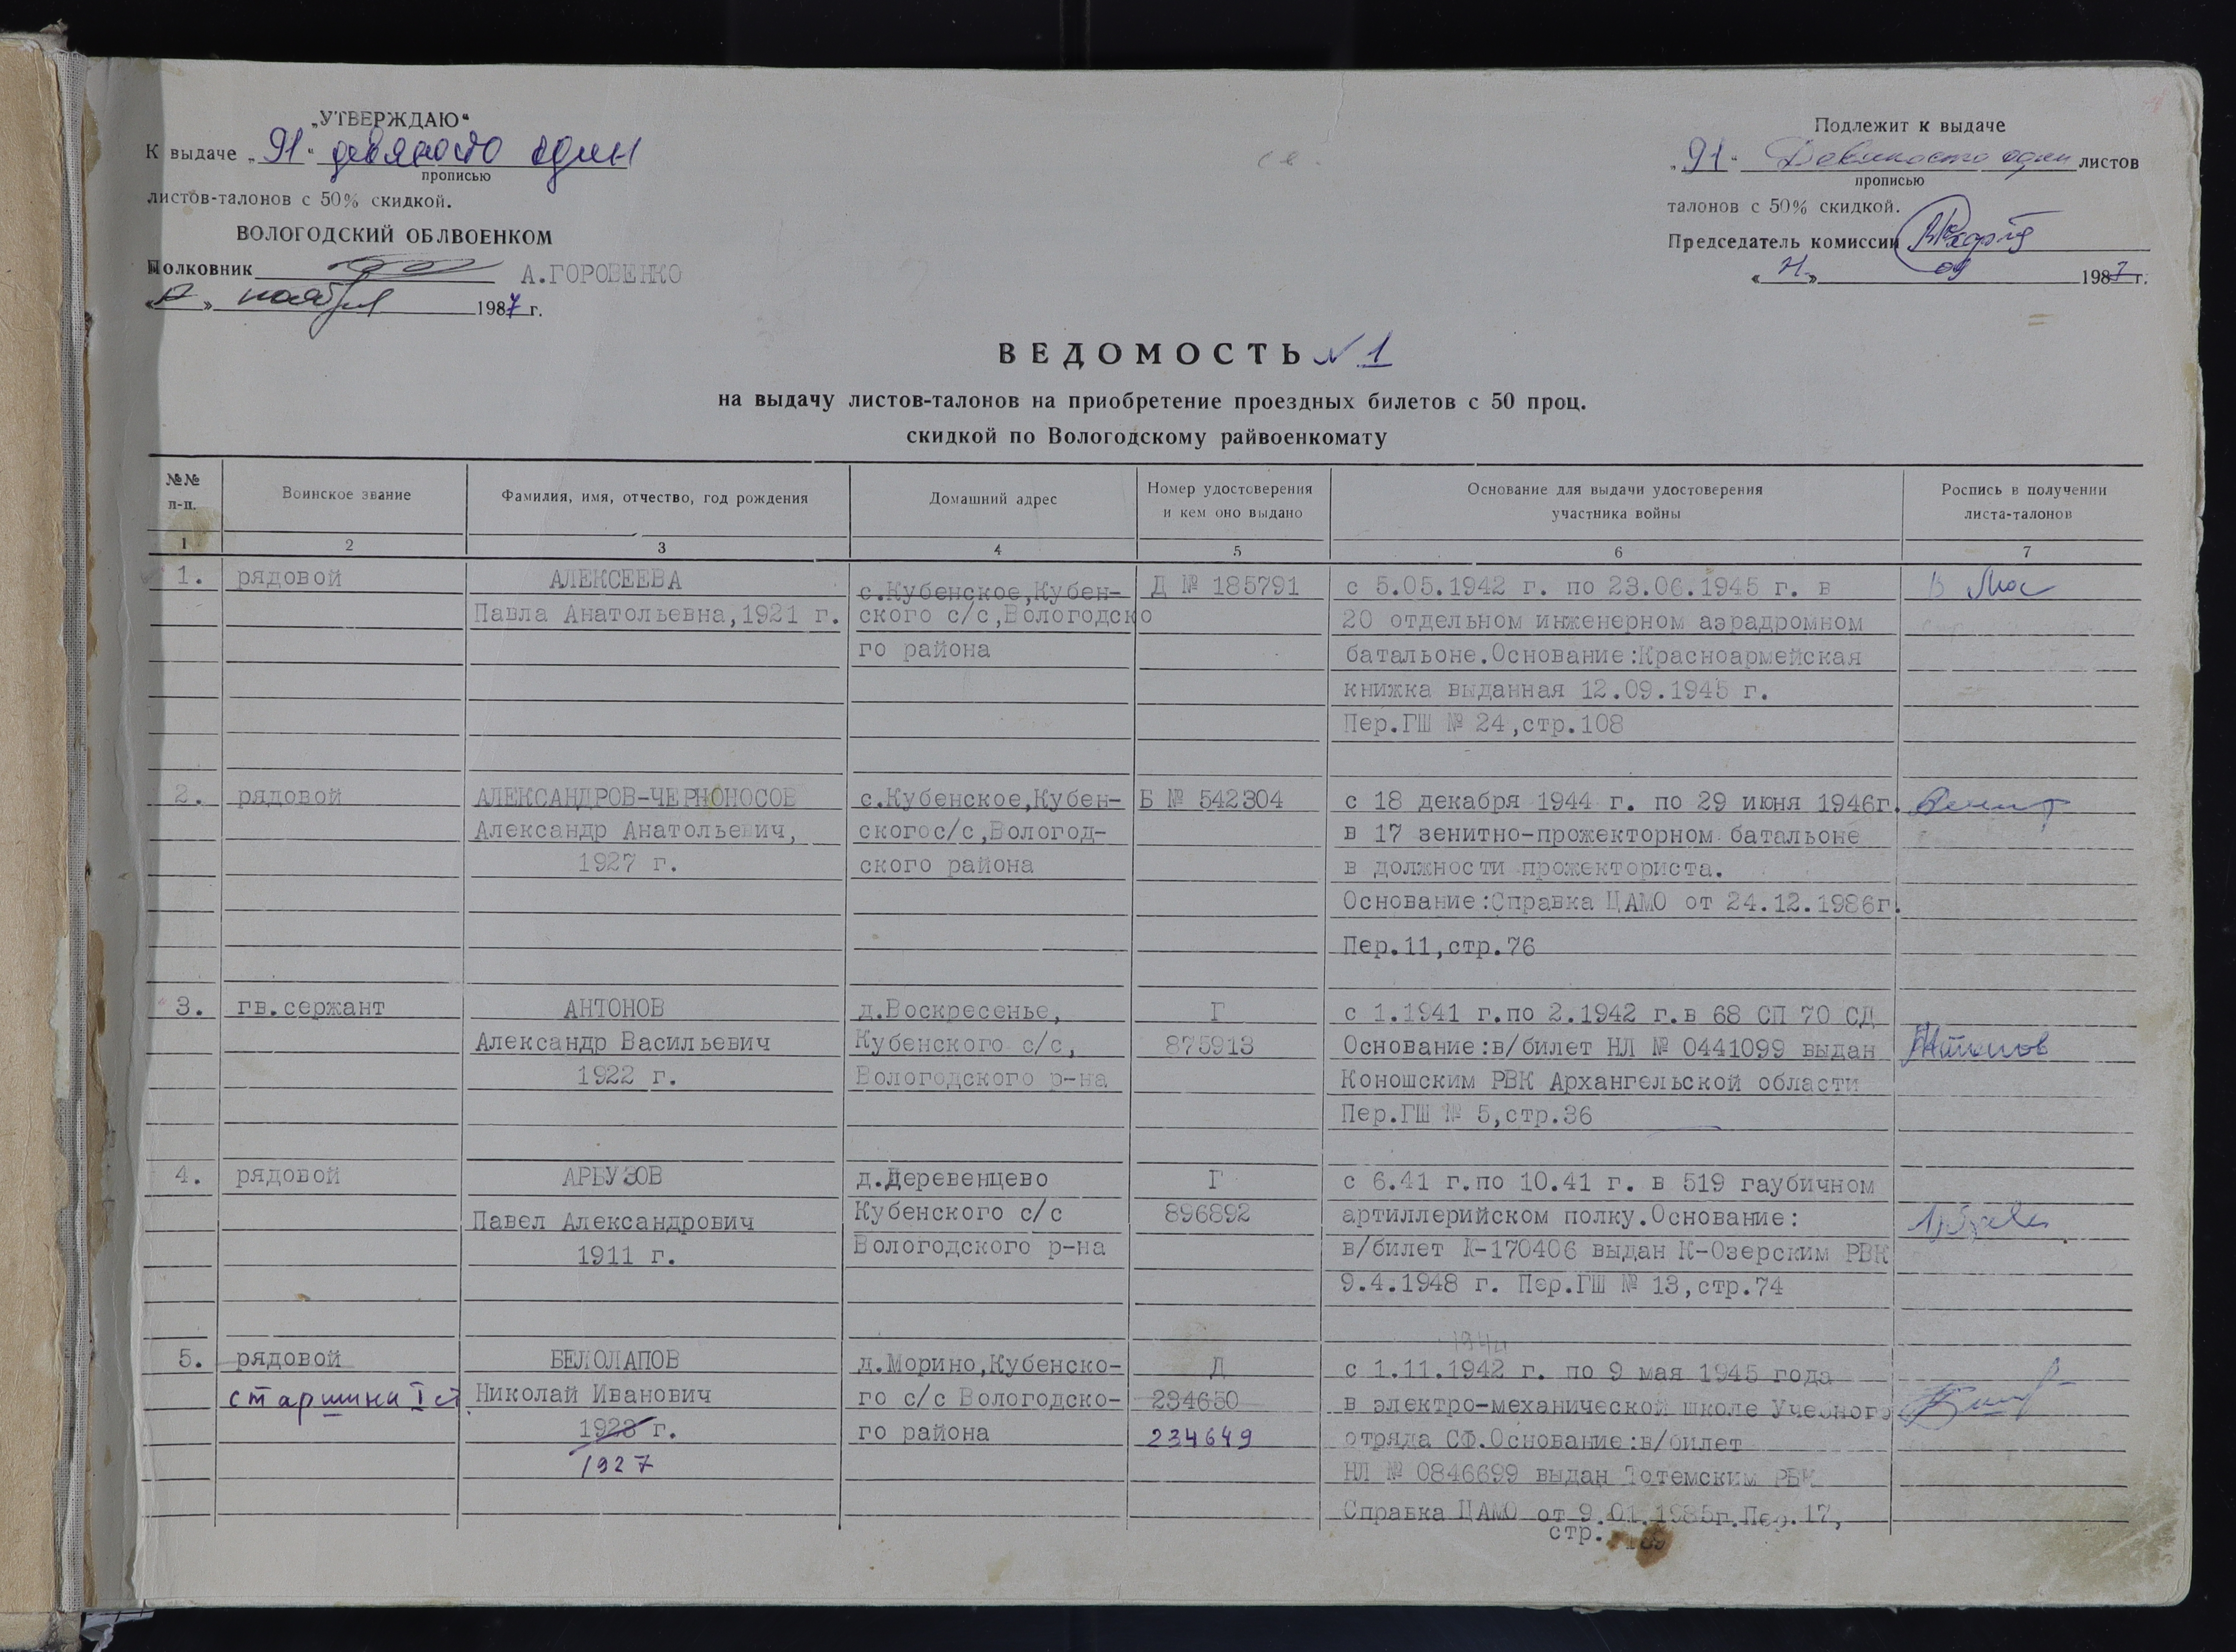 „УТВЕРЖДАЮ“
К выдаче „ 91 “ девяносто один
прописью
листов-талонов с 50% скидкой.
ВОЛОГОДСКИЙ ОБЛВОЕНКОМ
Полковник А.ГОРОВЕНКО
ноября 1987 г.
Подлежит к выдаче
„ 91 “ Девяносто один листов
прописью
талонов с 50% скидкой.
Председатель комиссии
09 1987 г.
ВЕДОМОСТЬ N 1
на выдачу листов-талонов на приобретение проездных билетов с 50 проц.
скидкой по Вологодскому райвоенкомату
№№ п-п.
Воинское звание
Фамилия, имя, отчество, год рождения
Домашний адрес
Номер удостоверения
и кем оно выдано
Основание для выдачи удостоверения
участника войны
Роспись в получении
листа-талонов
1 2 3 4 5 6 7
1. рядовой
АЛЕКСЕЕВА
Павла Анатольевна,1921 г.
с.Кубенское,Кубен-
ского с/с,Вологодско
го района
Д № 185791
с 5.05.1942 г. по 23.06.1945 г. в
20 отдельном инженерном аэрадромном
батальоне.Основание:Красноармейская
книжка выданная 12.09.1945 г.
Пер.ГШ № 24,стр.108
2. рядовой
АЛЕКСАНДРОВ-ЧЕРНОНОСОВ
Александр Анатольевич,
1927 г.
с.Кубенское,Кубен-
скогос/с,Вологод-
ского района
Б № 542304
с 18 декабря 1944 г. по 29 июня 1946г.
в 17 зенитно-прожекторном батальоне
в должности прожекториста.
Основание:Справка ЦАМО от 24.12.1986г.
Пер.11,стр.76
3. гв.сержант
АНТОНОВ
Александр Васильевич
1922 г.
д.Воскресенье,
Кубенского с/с,
Вологодского р-на
Г
875913
с 1.1941 г.по 2.1942 г.в 68 СП 70 СД
Основание:в/билет НЛ № 0441099 выдан
Коношским РВК Архангельской области
Пер.ГШ № 5,стр.36
Антонов
4. рядовой
АРБУЗОВ
Павел Александрович
1911 г.
д.Деревенцево
Кубенского с/с
Вологодского р-на
Г
896892
с 6.41 г.по 10.41 г. в 519 гаубичном
артиллерийском полку.Основание:
в/билет К-170406 выдан К-Озерским РВК
9.4.1948 г. Пер.ГШ № 13,стр.74
5. рядовой
старшина I ст
БЕЛОЛАПОВ
Николай Иванович
1923 г.
1927
д.Морино,Кубенско-
го с/с Вологодско-
го района
Д
234650
234649
1944
с 1.11.1942 г. по 9 мая 1945 года
в электро-механической школе Учебного
отряда СФ.Основание:в/билет
НЛ № 0846699 выдан Тотемским РВК
Справка ЦАМО от 9.01.1985г.Пер.17,
стр.